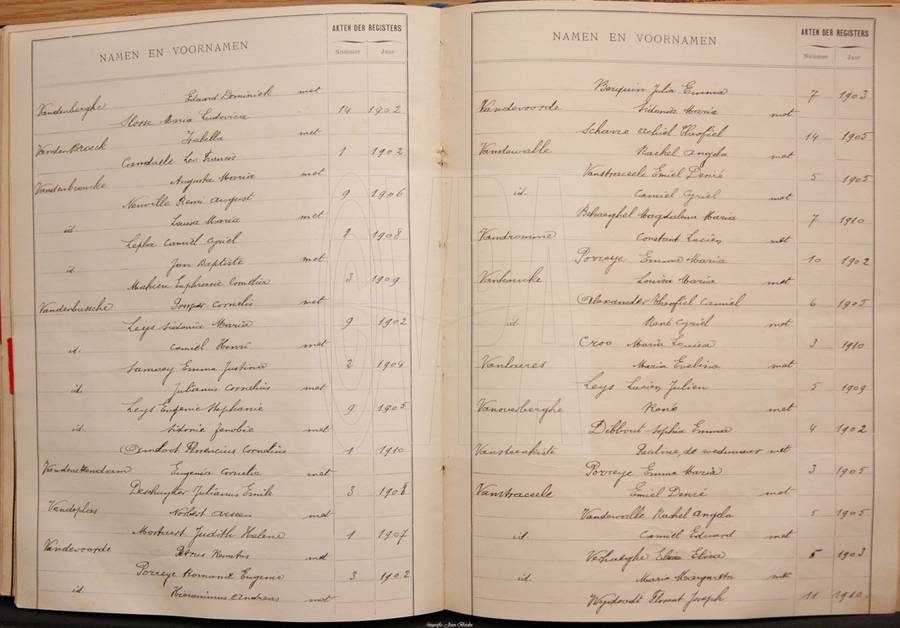 NAMEN EN VOORNAMEN
AKTEN DER REGISTERS
Nummer Jaar
Vandenberghe Eduard Dominiek met
Slosse Maria Ludovica 14 1902
Vanden Broeck Isabella met
Camdaele Leo Francis 1 1902
Vandenbroucke Augusta Maria met
Neuville Remi August 9 1906
id. Louisa Maria met
Lepla Camiel Cyriel 1908
id. Jan Baptiste met
Mahieu Euphrasie Cornelia 3 1909
Vandenbussche Prosper Cornelis met
Leys Sidonia Maria 9 1902
id. Camiel Henri met
Samoey Emma Justina 2 1904
id. Julianus Cornelius met
Leys Eugenie Stephanie 9 1905
id. Sidonie Zenobie met
Florencius Cornelius 1 1910
Eugenia Cornelia met
Deschuyter Julianus Emile 3 1908
Vandeplas Norbert met
Judith Helene 1 1907
Vandevoorde Petrus met
Porreye Romanie Eugenie 3 1902
id. Hieronimus Andreas met
NAMEN EN VOORNAMEN
AKTEN DER REGISTERS
Nummer Jaar
Julia Emma 7 1903
Vandevoorde Sidonie Maria met
Scharre Achiel Theofiel 14 1905
Vandewalle Rachel Angela met
Vanstraceele Emiel Désiré 5 1905
id. Camiel Cyriel met
Behaeghel Magdalena Maria 7 1910
Vandromme Constant Lucien met
Porreye Emma Maria 10 1902
Louisa Maria met
Alexander Theofiel Camiel 6 1905
id. René Cyriel met
Croo Maria Louisa 3 1910
Vanloeres Maria Evelina met
Leys Lucien Julien 5 1909
Vanoverberghe René met
Dibbout Sophia Emma 4 1902
Vansteenkiste Pauline, de weduwaar met
Porreye Emma Maria 3 1905
Vanstraceele Emiel Désiré met
Vandewalle Rachel Angela 5 1905
id. Camiel Eduard met
Verhaeghe Elisa 5 1903
id. Maria Margaretha met
Florent Joseph 11 1910